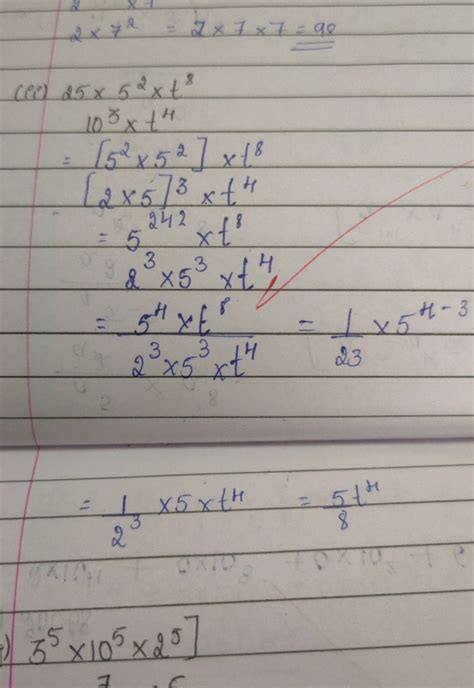 2 × 7² = 2 × 7 × 7 = 98
(ii) 25 × 5² × t⁸
10³ × t⁴
= [5² × 5²] × t⁸
[2 × 5]³ × t⁴
= 5²⁴² × t⁸
2³ × 5³ × t⁴
= 5⁴ × t⁸ = 1 × 5⁴⁻³
2³ × 5³ × t⁴ 23
= 1 × 5 × t⁴ = 5t⁴
2³ 8
3⁵ × 10⁵ × 2⁵]